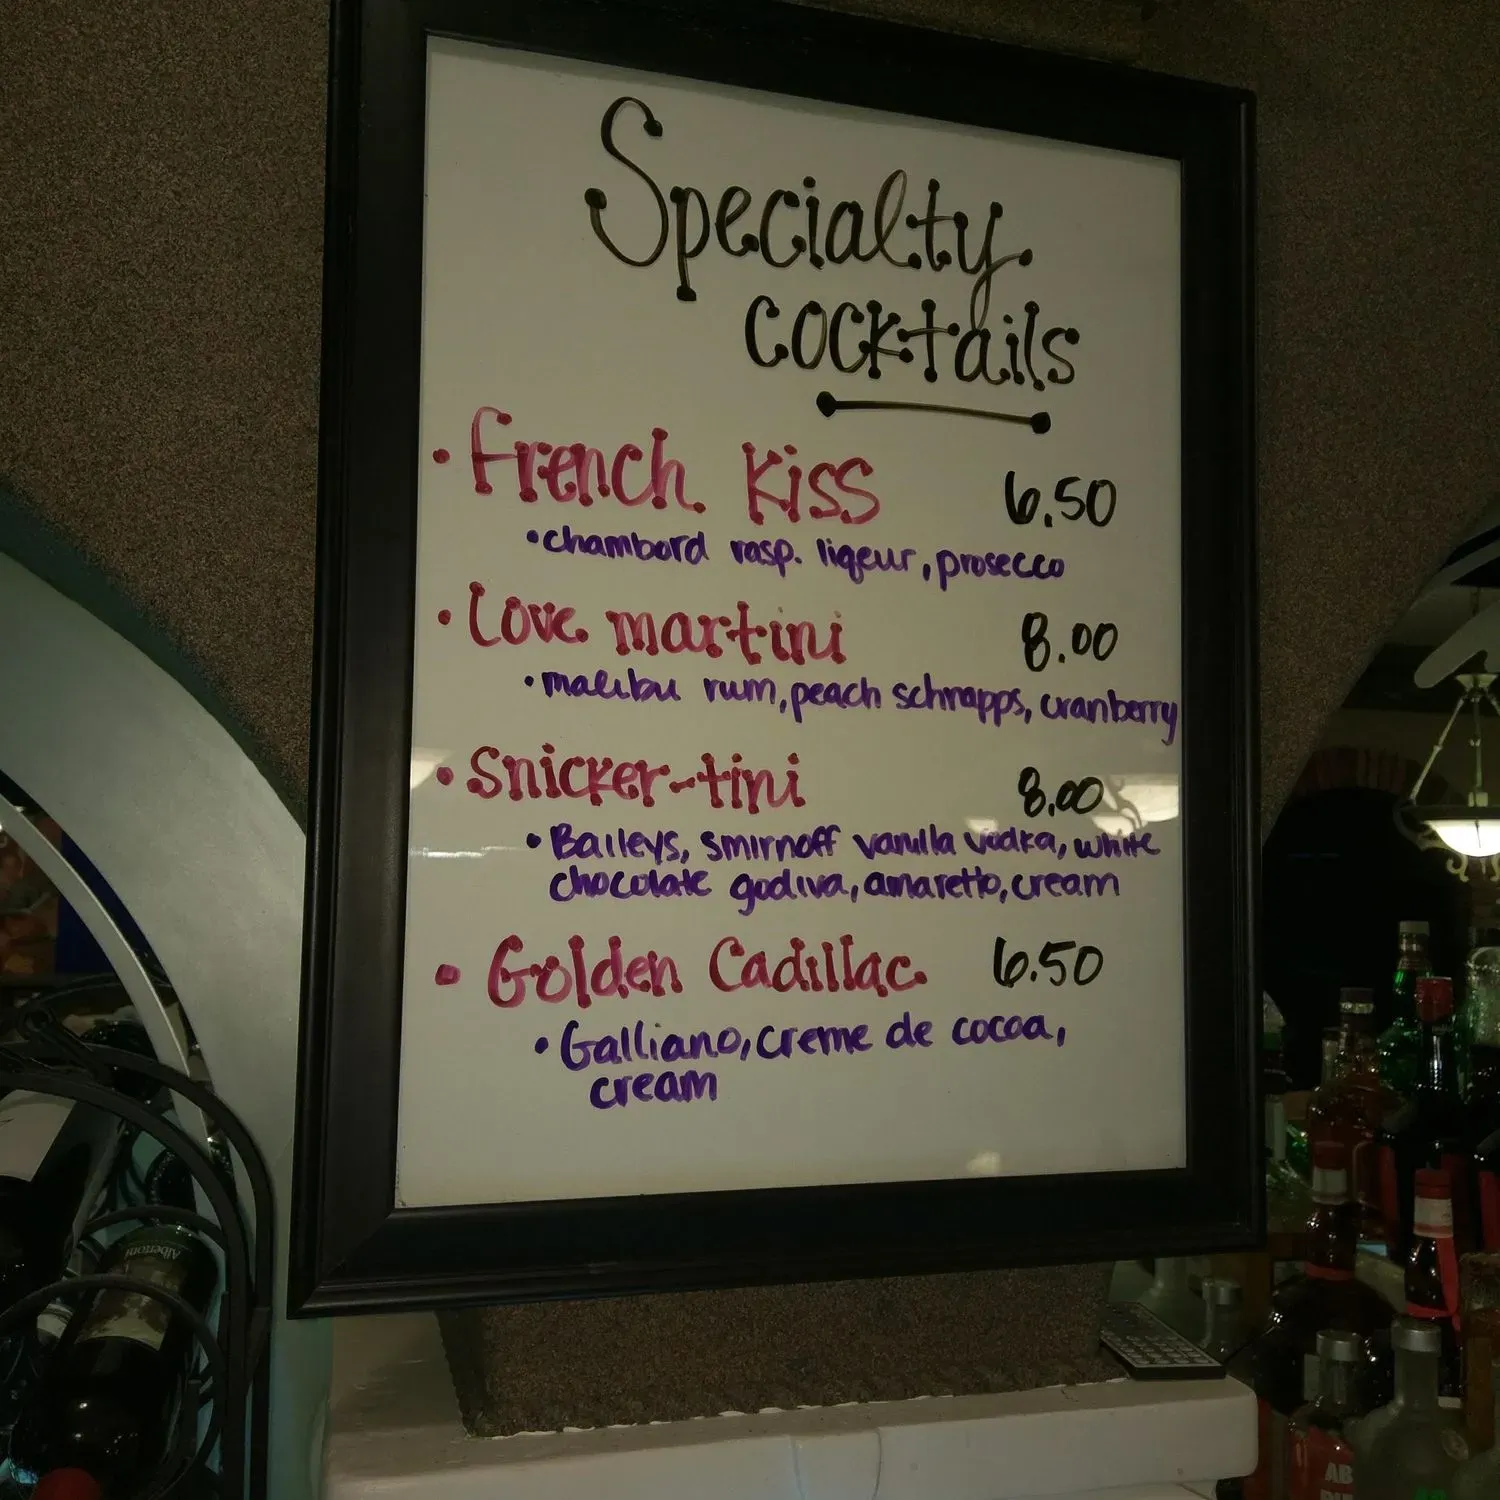 Specialty
cocktails
• French Kiss 6.50
• chambord rasp. liqeur, prosecco
• Love martini 8.00
• malibu rum, peach schnapps, cranberry
• Snicker-tini 8.00
• Baileys, smirnoff vanilla vodka, white
chocolate godiva, amaretto, cream
• Golden Cadillac 6.50
• Galliano, creme de cocoa,
cream
Albertoni
AB